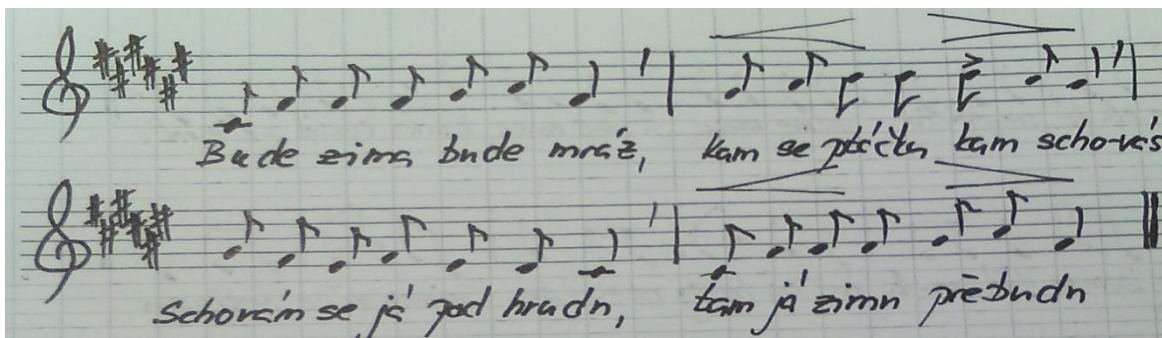 Bude zima bude mráz, kam se ptáčku kam scho-váš
Schovám se já pod hrudu, tam já zimu přebudu